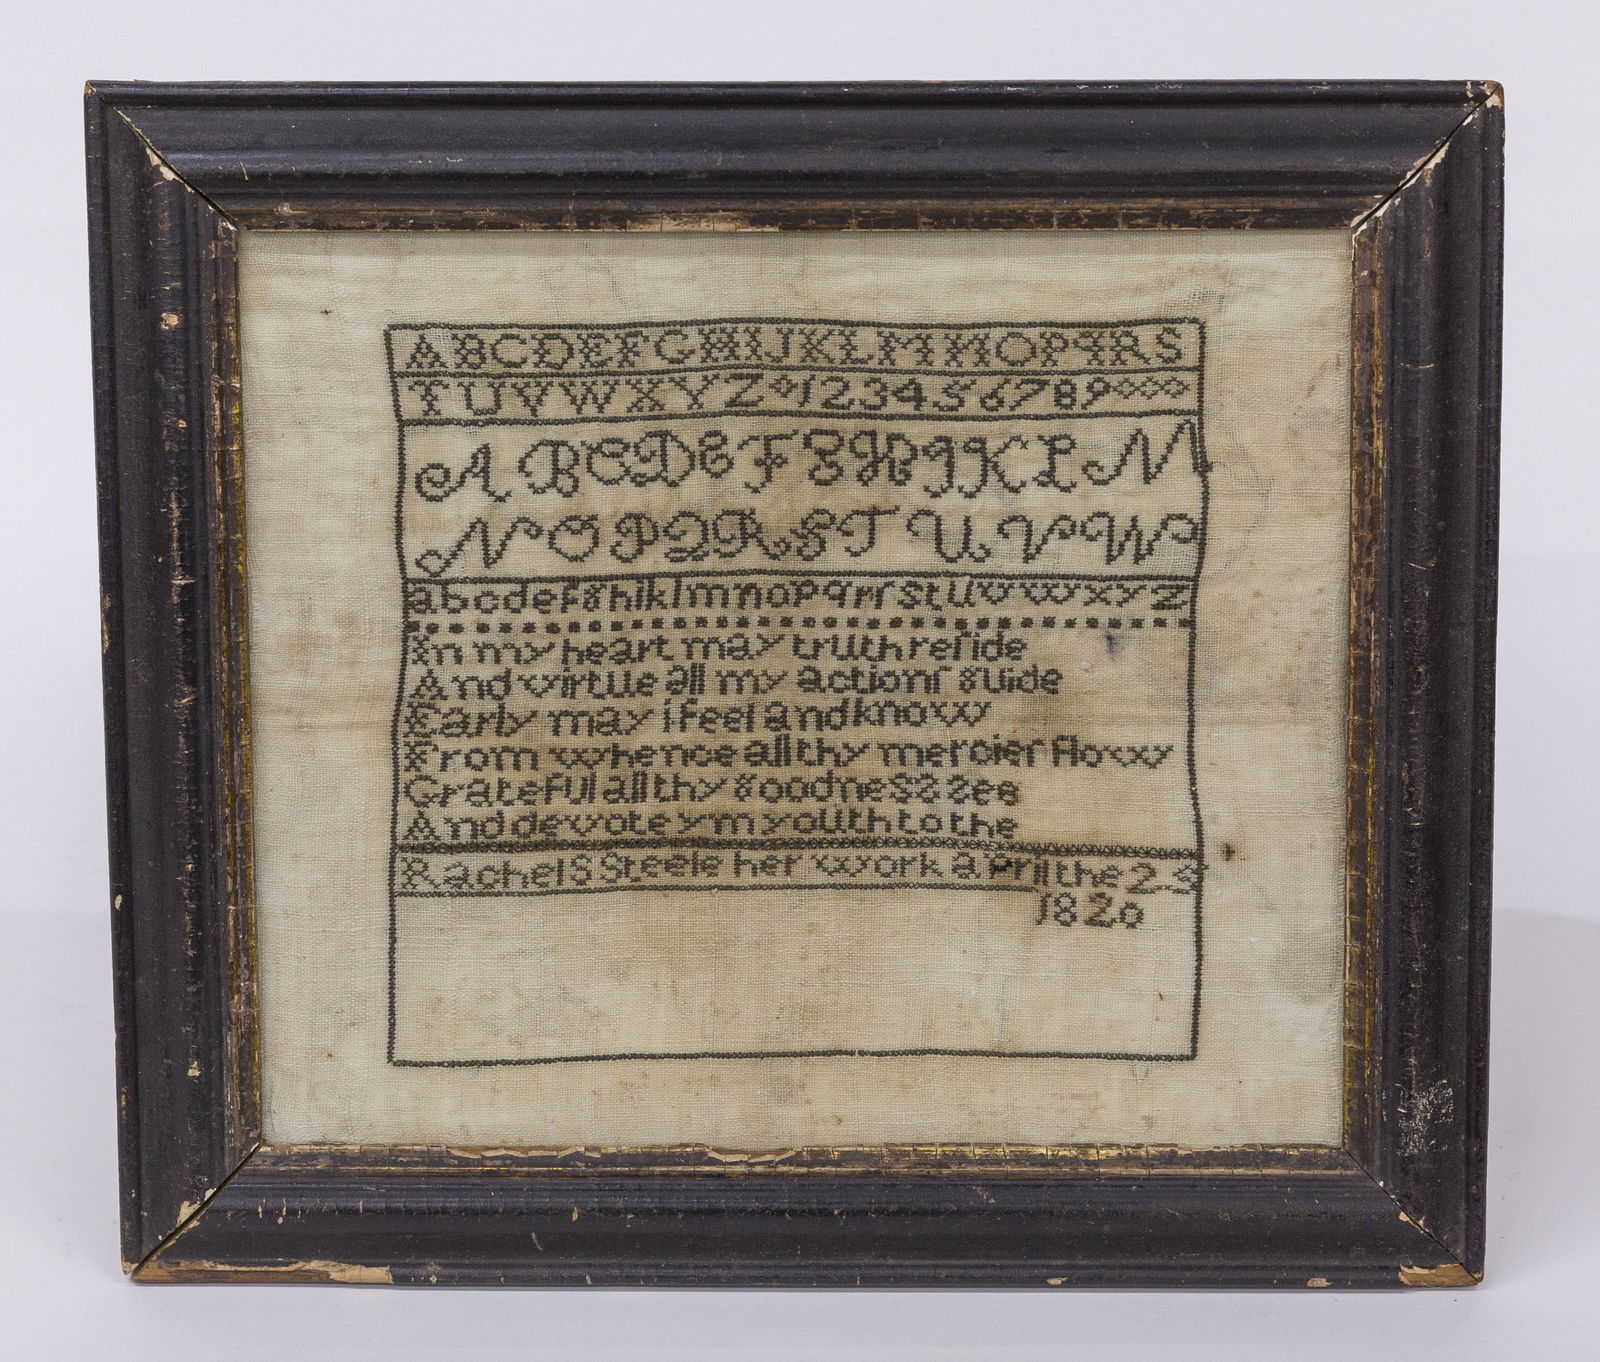 ABCDEFGHIJKLMNOPQRS
TUVWXYZ 123456789
A B C D E F G H J K L M
N O P Q R S T U V W
abcdefghiklmnopqrſstuvwxyz
In my heart may truth reſide
And virtue all my actionſ guide
Early may i feel and know
From whence all thy mercieſ flow
Grateful all thy goodness see
And devote ym youth to the
Rachel S Steele her work april the 25
1820